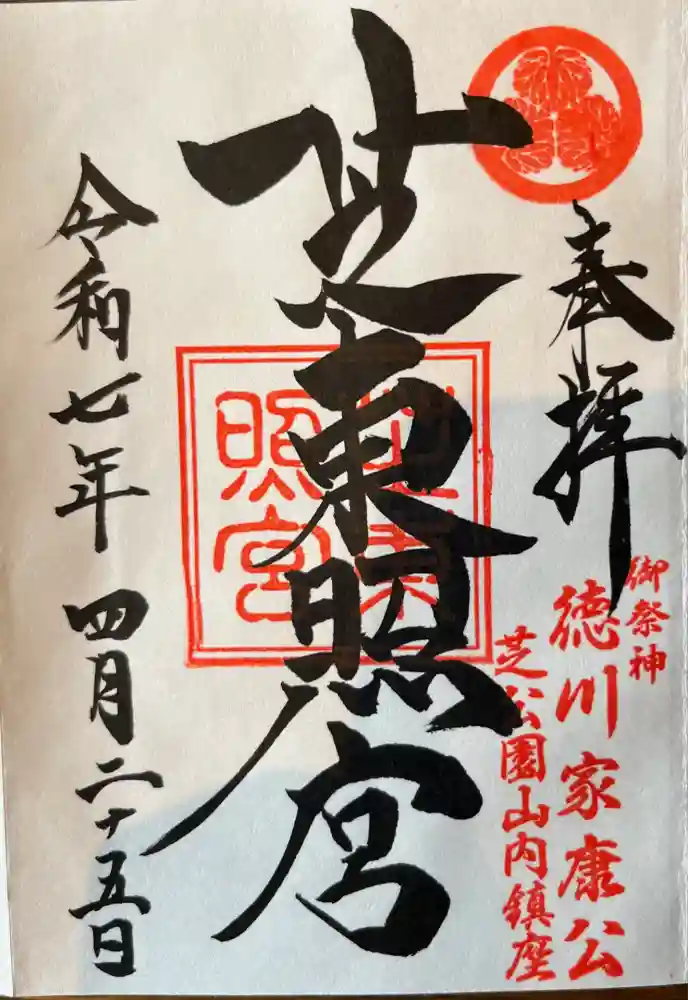 奉拝
御祭神
徳川家康公
芝公園山内鎮座
芝東照宮
芝東照宮
令和七年四月二十五日